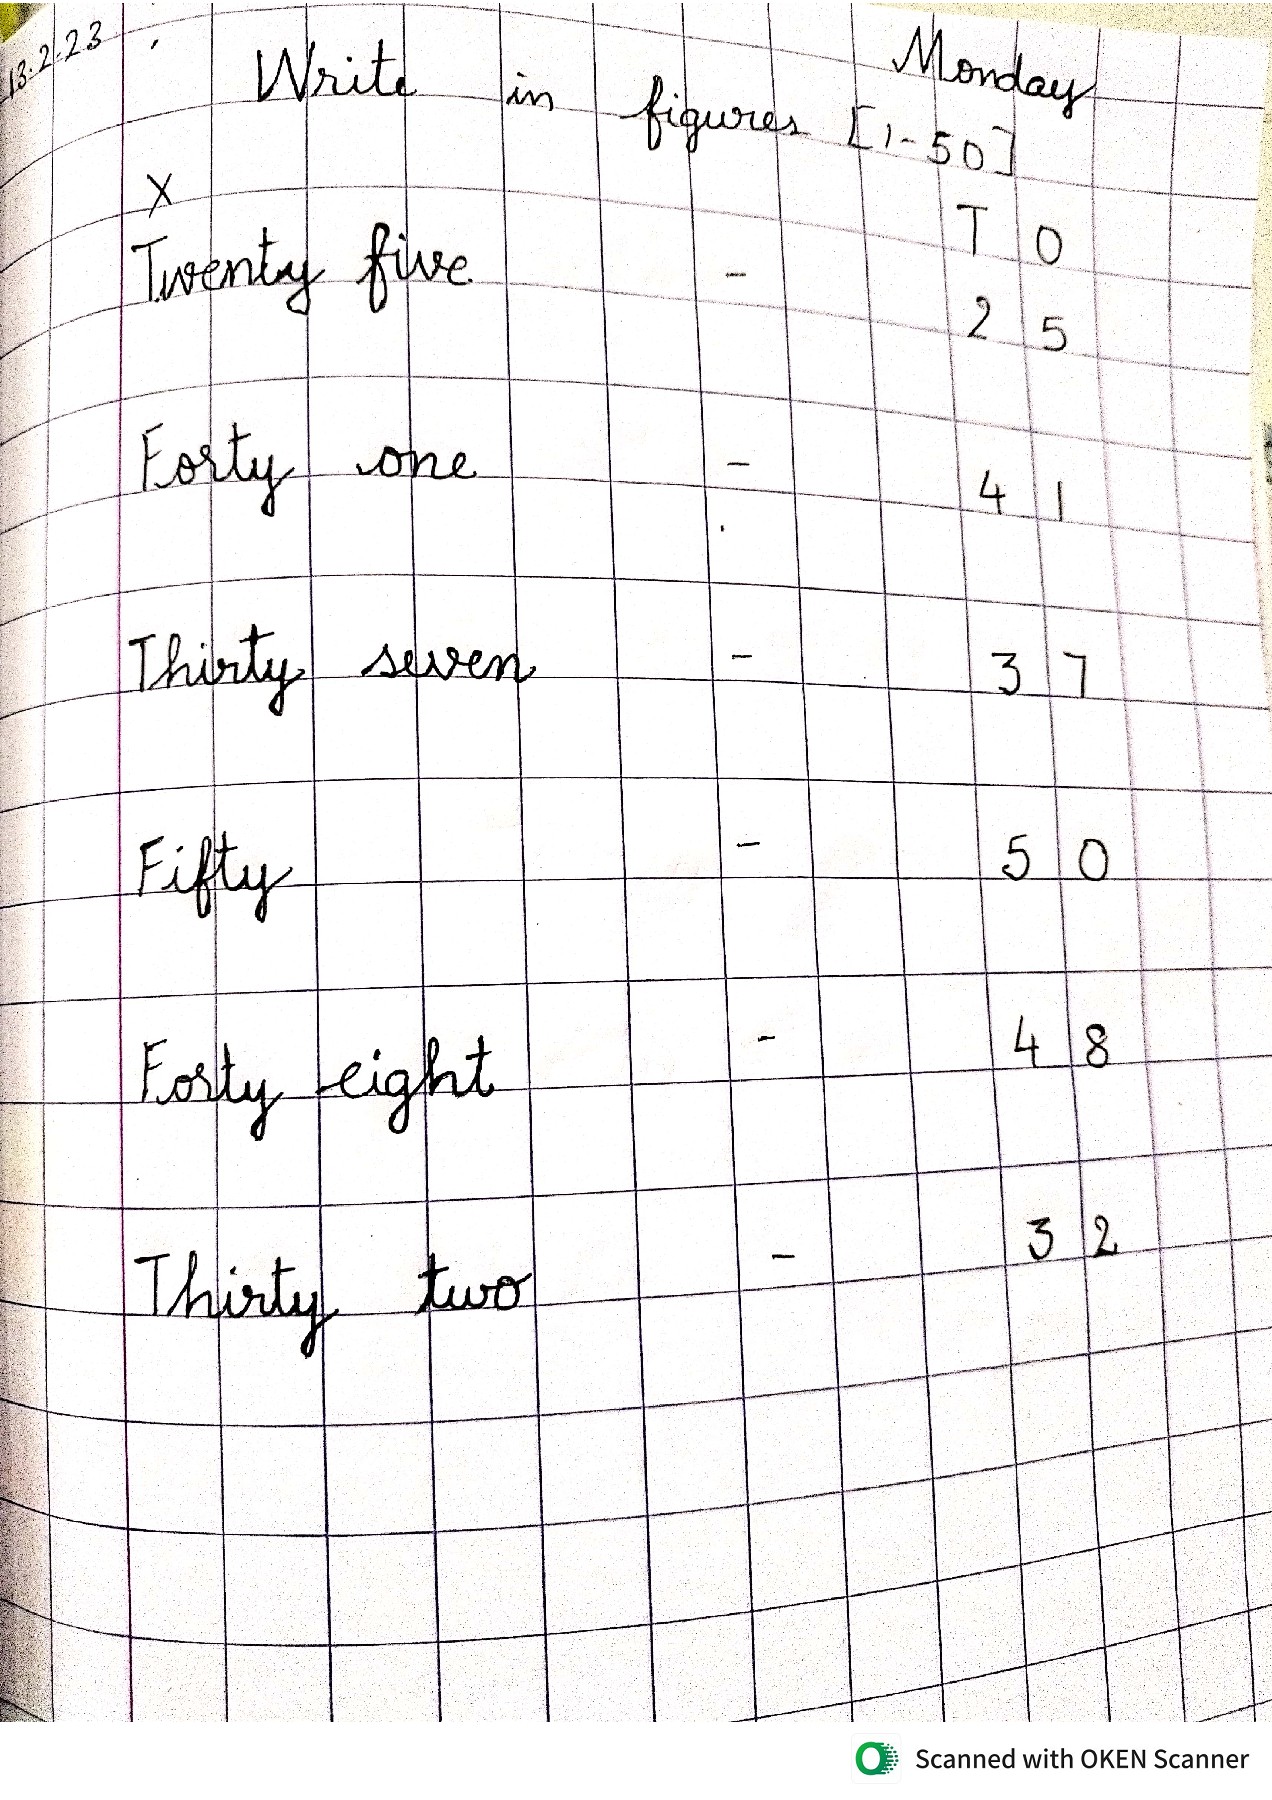 13.2.23 Monday
Write in figures [1-50]
X
T O
Twenty five - 2 5
Forty one - 4 1
Thirty seven - 3 7
Fifty - 5 0
Forty eight - 4 8
Thirty two - 3 2
Scanned with OKEN Scanner